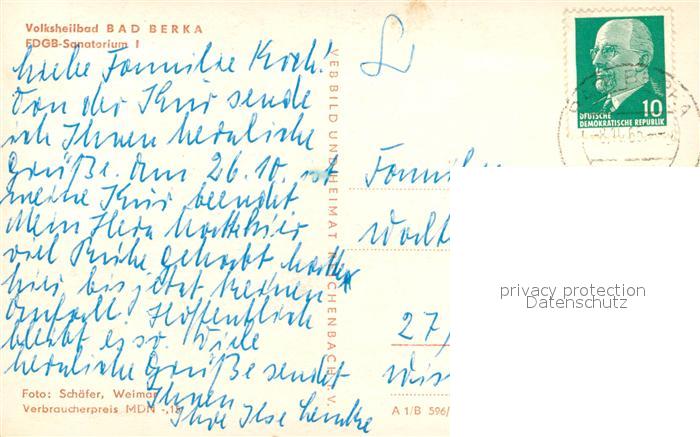 Volksheilbad BAD BERKA
FDGB-Sanatorium I
Liebe Familie Koch!
Von der Kur sende
ich Ihnen herzliche
Grüße. Am 26.10. ist
meine Kur beendet
Mein Herz hatte hier
viel Ruhe gehabt hatte
hier bis jetzt keinen
Anfall. Hoffentlich
bleibt es so. Viele
herzliche Grüße sendet
Ihnen
Ihre Ilse Lemke
Foto: Schäfer, Weimar
Verbraucherpreis MDN -,18
VEB BILD UND HEIMAT REICHENBACH i. V.
10
DEUTSCHE
DEMOKRATISCHE REPUBLIK
BAD BERKA
Familie
27/
A 1/B 596/
privacy protection
Datenschutz